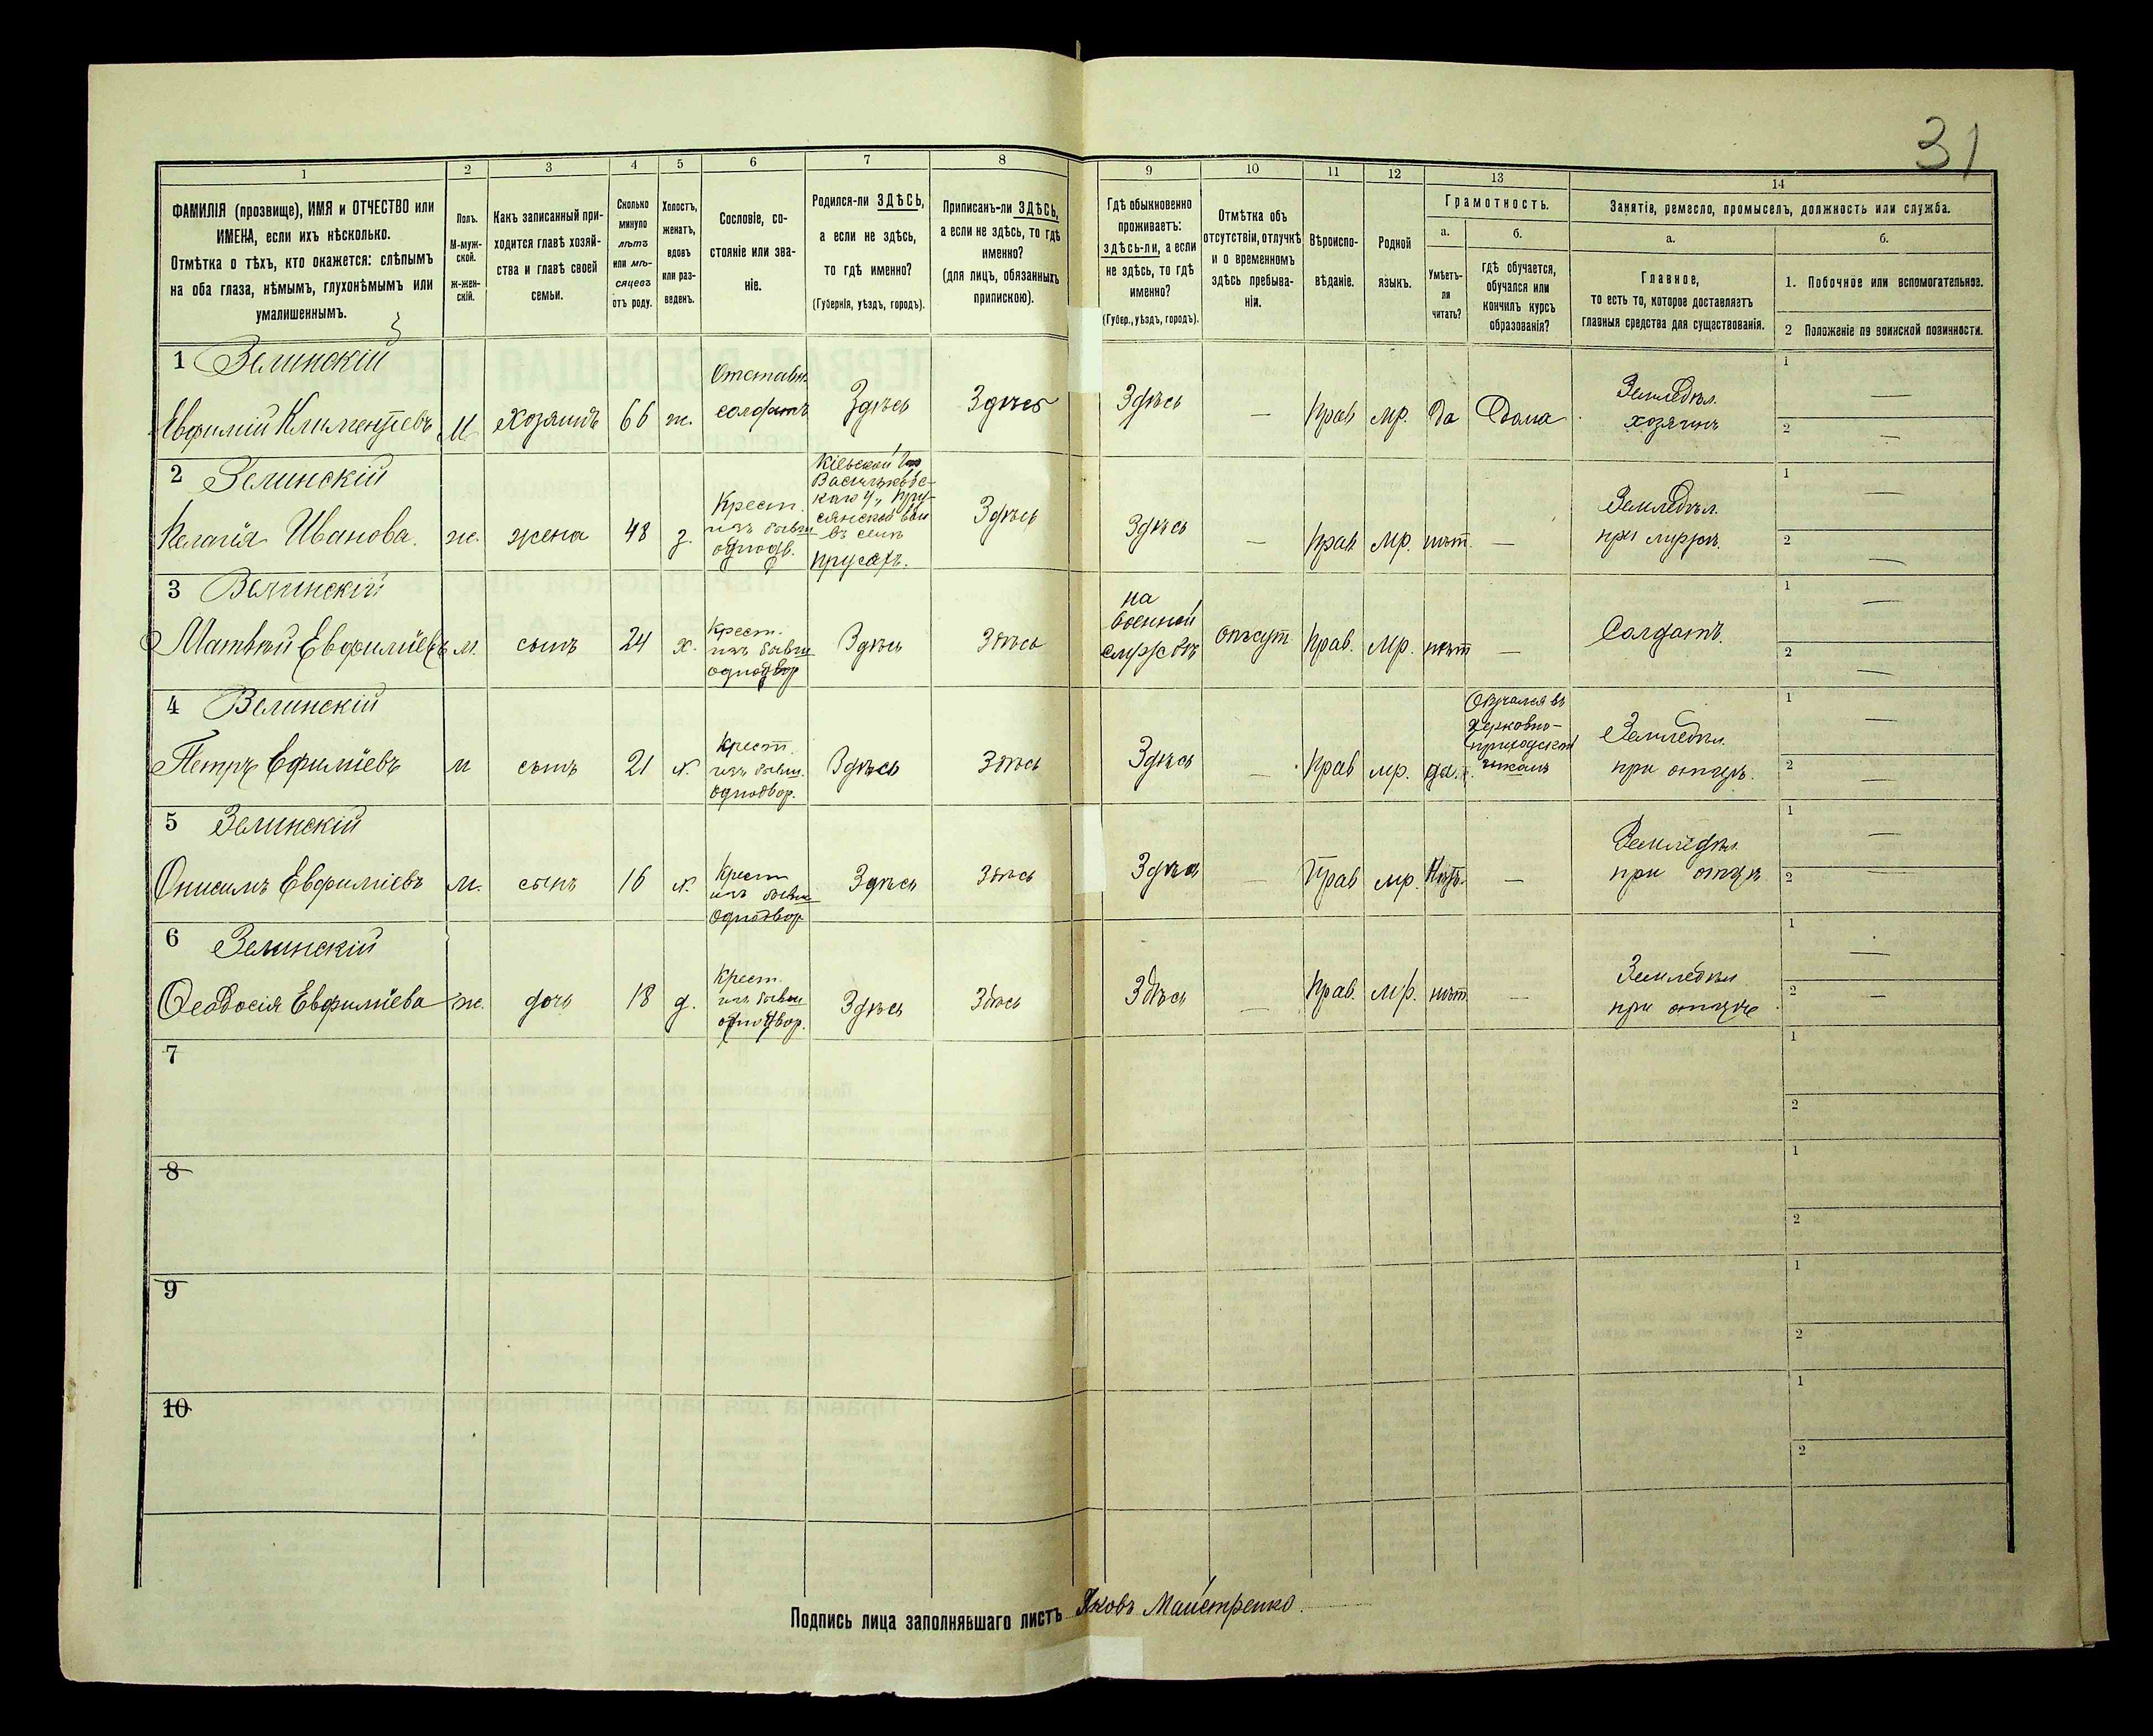 31
1
2
3
4
5
6
7
8
9
10
11
12
13
14
ФАМИЛІЯ (прозвище), ИМЯ и ОТЧЕСТВО или
ИМЕНА, если ихъ нѣсколько.
Отмѣтка о тѣхъ, кто окажется: слѣпымъ
на оба глаза, нѣмымъ, глухонѣмымъ или
умалишеннымъ.
Полъ.
М-муж-
ской.
Ж-жен-
скій.
Какъ записанный при-
ходится главѣ хозяй-
ства и главѣ своей
семьи.
Сколько
минуло
лѣтъ
или мѣ-
сяцевъ
отъ роду.
Холостъ,
женатъ,
вдовъ
или раз-
веденъ.
Сословіе, со-
стояніе или зва-
ніе.
Родился-ли ЗДѢСЬ,
а если не здѣсь,
то гдѣ именно?
(Губернія, уѣздъ, городъ).
Приписанъ-ли ЗДѢСЬ,
а если не здѣсь, то гдѣ
именно?
(для лицъ, обязанныхъ
припискою).
Гдѣ обыкновенно
проживаетъ:
здѣсь-ли, а если
не здѣсь, то гдѣ
именно?
(Губер., уѣздъ, городъ).
Отмѣтка объ
отсутствіи, отлучкѣ
и о временномъ
здѣсь пребыва-
ніи.
Вѣроиспо-
вѣданіе.
Родной
языкъ.
Грамотность.
а.
б.
Умѣетъ-
ли
читать?
гдѣ обучается,
обучался или
кончилъ курсъ
образованія?
Занятіе, ремесло, промыселъ, должность или служба.
а.
б.
Главное,
то есть то, которое доставляетъ
главныя средства для существованія.
1. Побочное или вспомогательное.
2 Положеніе по воинской повинности.
1 Зелинскій
Евфимій Климентіевъ
М
Хозяинъ
66
ж.
Отставн.
солдатъ
Здѣсь
Здѣсь
Здѣсь
—
Прав
мр.
Да
Дома
Земледѣл.
хозяинъ
1 —
2 —
2 Зелинскій
Пелагія Иванова.
ж.
жена
48
з.
Крест.
изъ бывш
однодв.
Кіевской
Васильковс-
каго у,
въ селѣ
Прусахъ.
Здѣсь
Здѣсь
—
Прав
мр.
нѣт.
—
Земледѣл.
при мужѣ.
1 —
2 —
3 Зелинскій
Матвѣй Евфиміевъ
м.
сынъ
24
х.
Крест.
изъ бывш
однодвор
Здѣсь
Здѣсь
на
военной
службѣ
отсут.
Прав.
мр.
нѣт
—
Солдатъ.
1 —
2 —
4 Зелинскій
Петръ Ефиміевъ
м
сынъ
21
х.
Крест.
изъ бывш.
однодвор.
Здѣсь
Здѣсь
Здѣсь
—
Прав
мр.
да.
Обучался въ
церковно-
приходской
школѣ
Земледѣл.
при отцѣ.
1 —
2 —
5 Зелинскій
Онисимъ Евфиміевъ
м.
сынъ
16
х.
Крест
изъ бывш
однодвор
Здѣсь
Здѣсь
Здѣсь
—
Прав
мр.
Нѣт.
—
Земледѣл
при отцѣ
1 —
2 —
6 Зелинскій
Ѳеодосія Евфиміева
ж.
дочь
18
д.
Крест.
изъ бывш
однодвор.
Здѣсь
Здѣсь
Здѣсь
—
Прав.
мр.
нѣт.
—
Земледѣл
при отцѣ
1 —
2 —
7
1
2
8
1
2
9
1
2
10
1
2
Подпись лица заполнявшаго листъ Яковъ Майстренко.